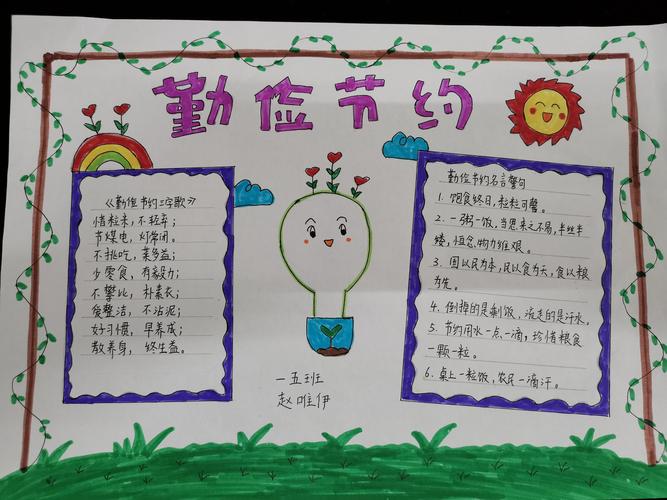 勤俭节约
《勤俭节约三字歌》
惜粒米，不轻弃；
节煤电，灯常闭。
不挑吃，菜多益；
少零食，有毅力；
不攀比，朴素衣；
爱整洁，不沾泥；
好习惯，早养成；
教养身，终生益。
一五班
赵唯伊
勤俭节约名言警句
1. 饱食终日，粒粒可馨。
2. 一粥一饭，当思来之不易，半丝半
缕，恒念物力维艰。
3. 国以民为本，民以食为天，食以粮
为先。
4. 倒掉的是剩饭，流走的是汗水。
5. 节约用水一点一滴，珍惜粮食
一颗一粒。
6. 桌上一粒饭，农民一滴汗。